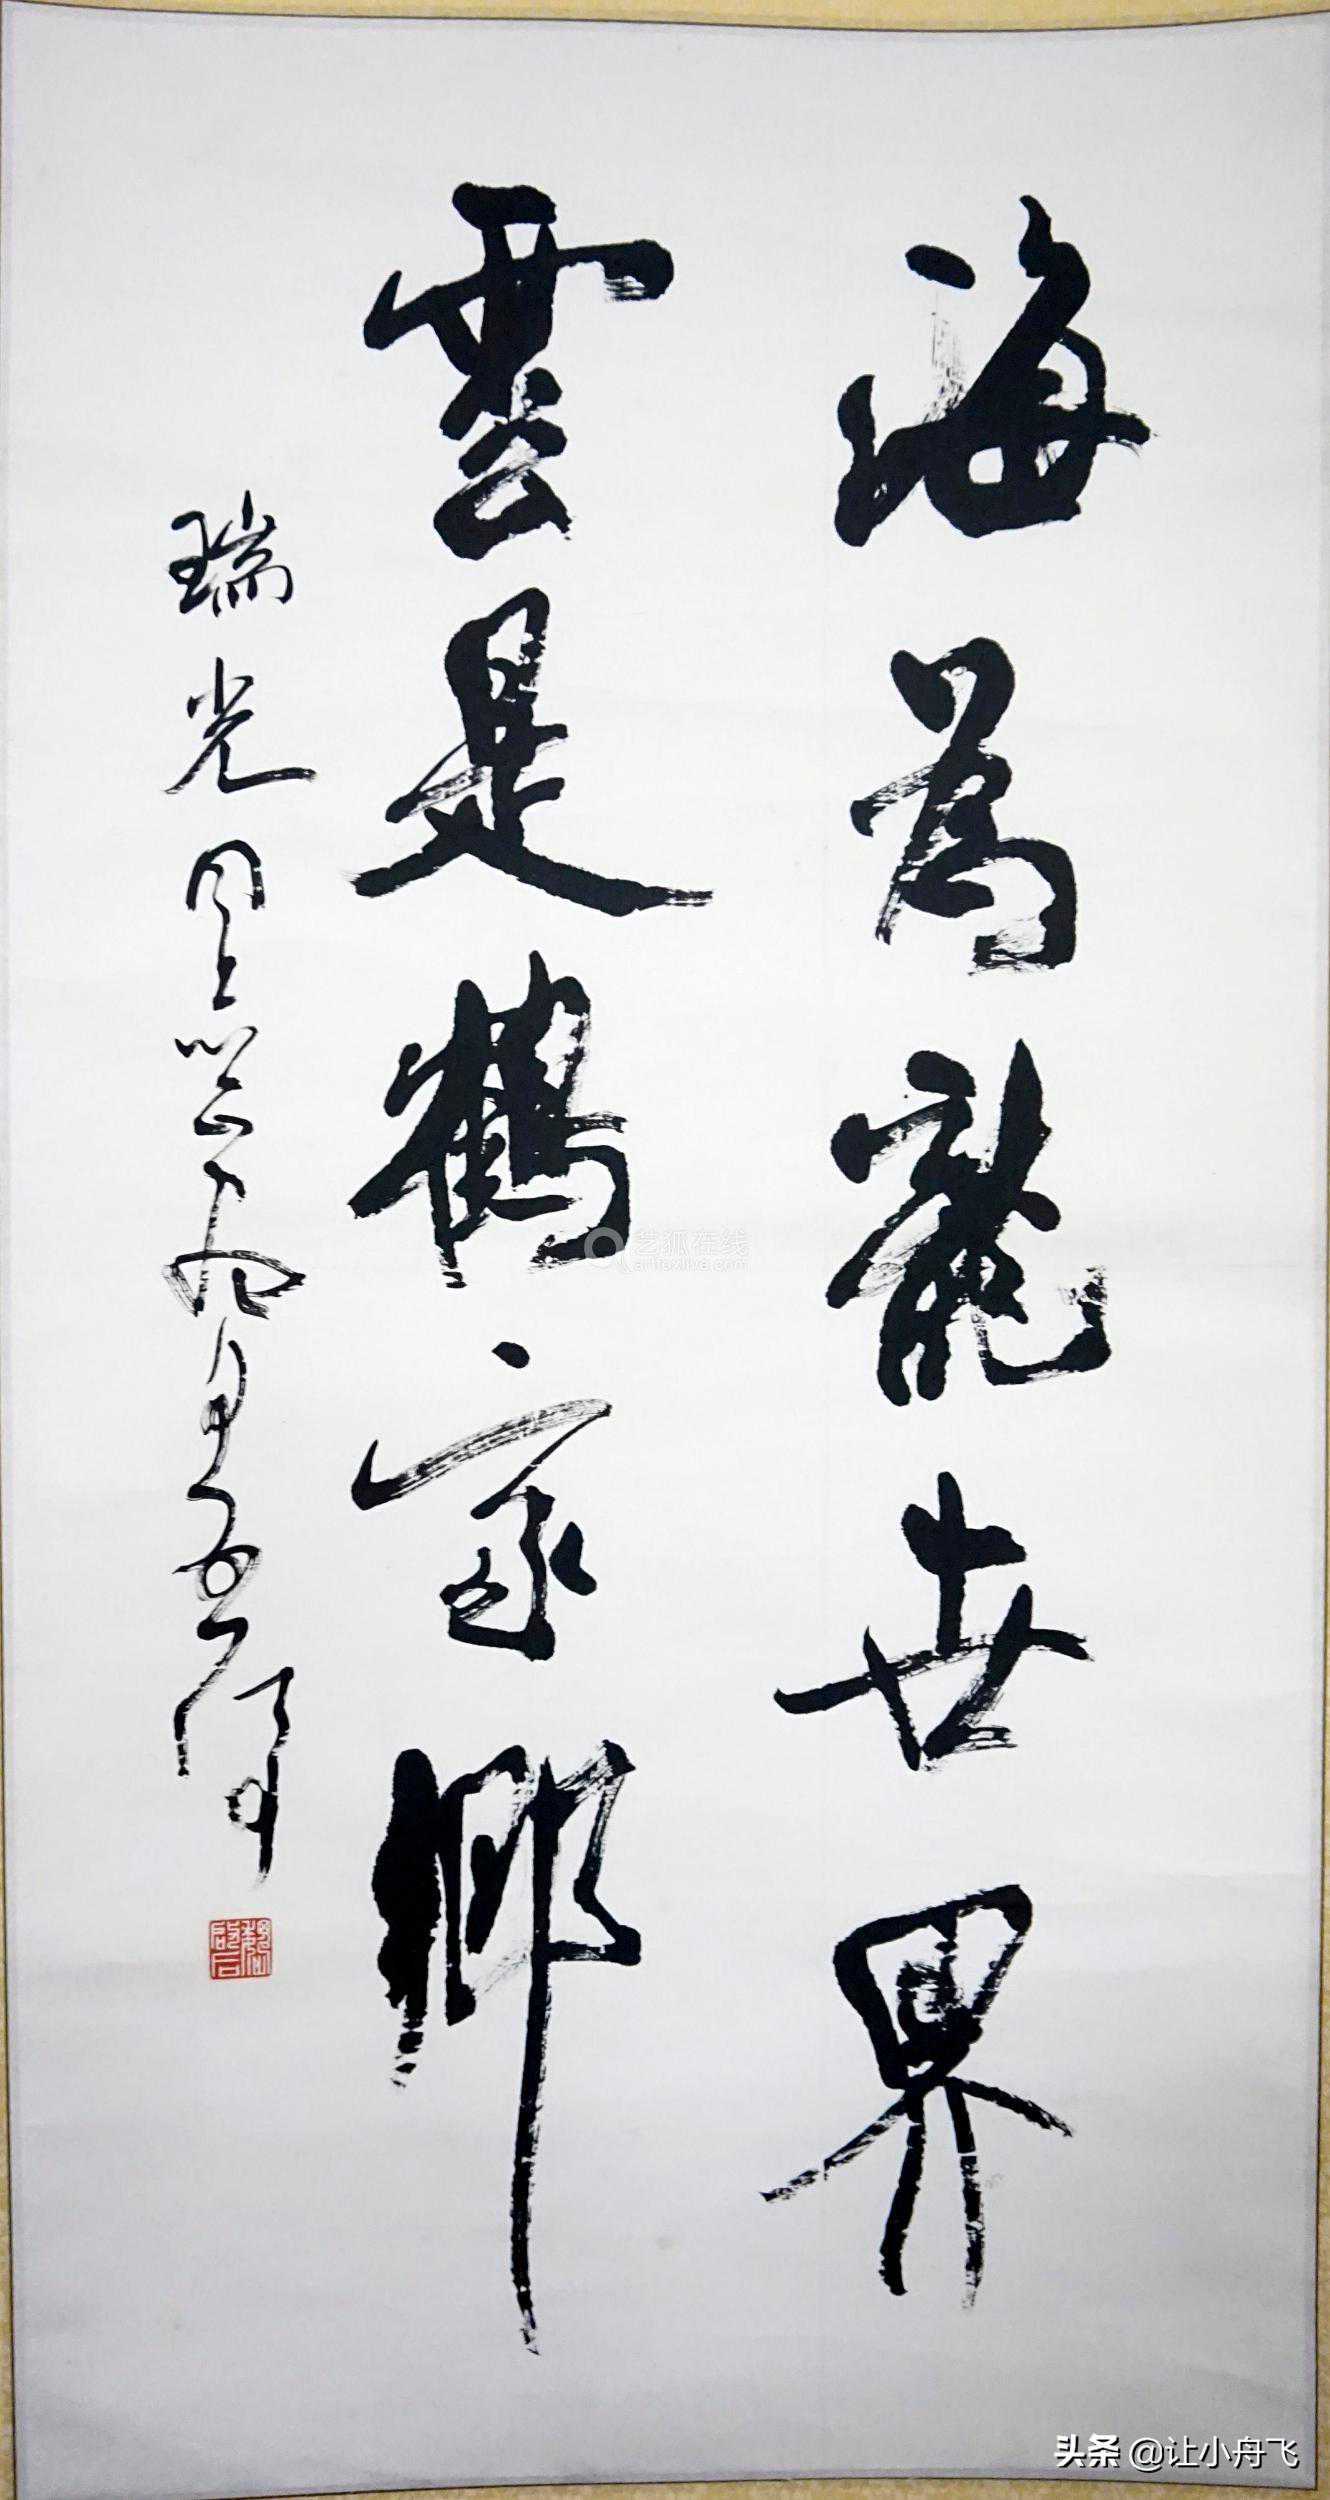 海為龍世界
雲是鶴家鄉
瑞光同志正
魏啟后
艺狐在线
artfoxlive.com
头条 @让小舟飞